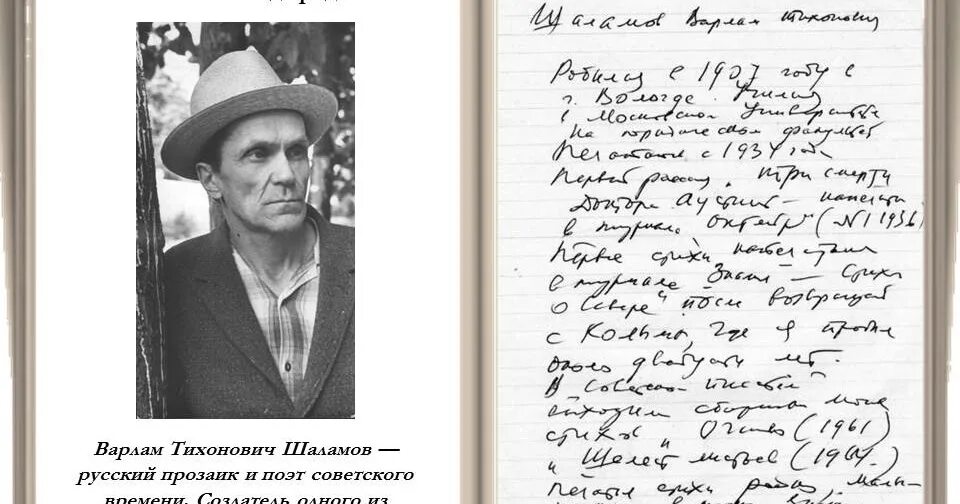 Варлам Тихонович Шаламов —
русский прозаик и поэт советского
времени. Создатель одного из
Шаламов Варлам Тихонович
Родился в 1907 году в
г. Вологде. Учился
в Московском Университете
на юридическом факультете
Печататься с 1934 года
Первый рассказ „Три смерти
Доктора Аустино" — напечатан
в журнале „Октябрь" (№1 1936)
Первые стихи напечатаны
в журнале Знамя — „Стихи
о Севере" после возвращения
с Колымы, где я пробыл
около двадцати лет.
В Советском писателе
выходили сборники моих
стихов „Огниво" (1961)
и „Шелест листьев" (1964)
Печатал стихи